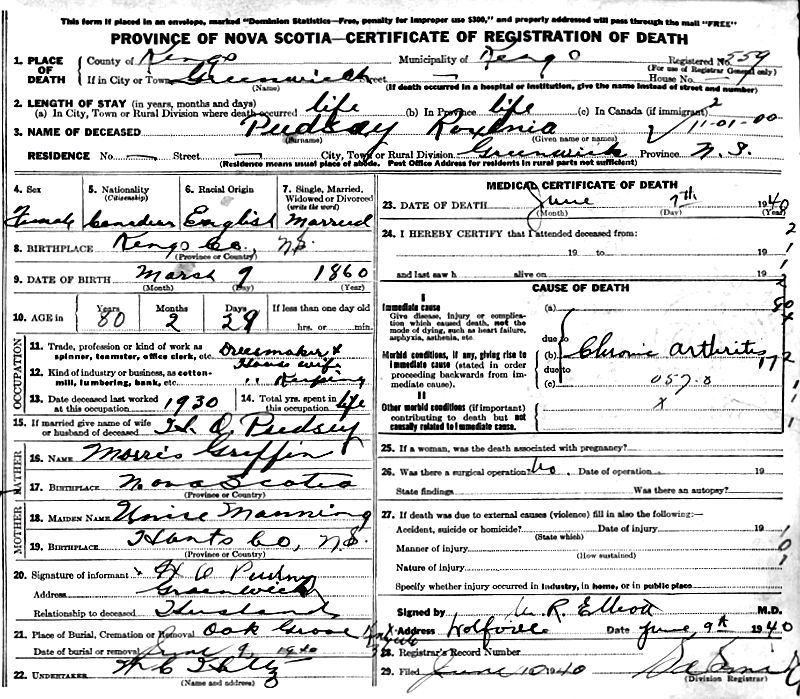 This form if placed in an envelope, marked "Dominion Statistics—Free, penalty for improper use $300," and properly addressed will pass through the mail "FREE"
PROVINCE OF NOVA SCOTIA—CERTIFICATE OF REGISTRATION OF DEATH
1. PLACE OF DEATH County of Kings Municipality of Kings Registered No. 559
(For use of Registrar General only)
If in City or Town Greenwich Street — House No. —
(Name) (If death occurred in a hospital or institution, give the name instead of street and number)
2. LENGTH OF STAY (in years, months and days)
(a) In City, Town or Rural Division where death occurred life (b) In Province life (c) In Canada (if immigrant)
3. NAME OF DECEASED Pudsey Roxenia 11-01-00
(Surname) (Given name or names)
RESIDENCE No. — Street — City, Town or Rural Division Greenwich Province N.S.
(Residence means usual place of abode. Post Office Address for residents in rural parts not sufficient)
4. Sex Female
5. Nationality (Citizenship) Canadian
6. Racial Origin English
7. Single, Married, Widowed or Divorced (write the word) Married
8. BIRTHPLACE Kings Co., N.S.
(Province or Country)
9. DATE OF BIRTH March 9 1860
(Month) (Day) (Year)
10. AGE in Years 80 Months 2 Days 29 If less than one day old hrs. or min.
OCCUPATION
11. Trade, profession or kind of work as spinner, teamster, office clerk, etc. Dressmaker & House wife
12. Kind of industry or business, as cotton-mill, lumbering, bank, etc. " Keeping
13. Date deceased last worked at this occupation 1930 14. Total yrs. spent in this occupation life
15. If married give name of wife or husband of deceased H. O. Pudsey
FATHER
16. NAME Morris Griffin
17. BIRTHPLACE Nova Scotia
(Province or Country)
MOTHER
18. MAIDEN NAME Unise Manning
19. BIRTHPLACE Hants Co, N.S.
(Province or Country)
20. Signature of informant H O Pudsey
Address Greenwich
Relationship to deceased Husband
21. Place of Burial, Cremation or Removal Oak Grove
Date of burial or removal June 9 1940
22. UNDERTAKER
(Name and address)
MEDICAL CERTIFICATE OF DEATH
23. DATE OF DEATH June 7th 1940
(Month) (Day) (Year)
24. I HEREBY CERTIFY that I attended deceased from:
19 to 19
and last saw h alive on 19
CAUSE OF DEATH
I
Immediate cause
Give disease, injury or complication which caused death, not the mode of dying, such as heart failure, asphyxia, asthenia, etc.
(a)
due to
Morbid conditions, if any, giving rise to immediate cause (stated in order proceeding backwards from immediate cause).
(b) Chronic arthritis
due to
(c) 057.8
II
Other morbid conditions (if important) contributing to death but not causally related to immediate cause.
x
25. If a woman, was the death associated with pregnancy?
26. Was there a surgical operation? No. Date of operation 19
State findings Was there an autopsy?
27. If death was due to external causes (violence) fill in also the following:—
Accident, suicide or homicide? Date of injury 19
(State which)
Manner of injury
(How sustained)
Nature of injury
Specify whether injury occurred in industry, in home, or in public place
Signed by R. Elliott M.D.
Address Wolfville Date June 9th 1940
28. Registrar's Record Number
29. Filed June 10 1940
(Division Registrar)